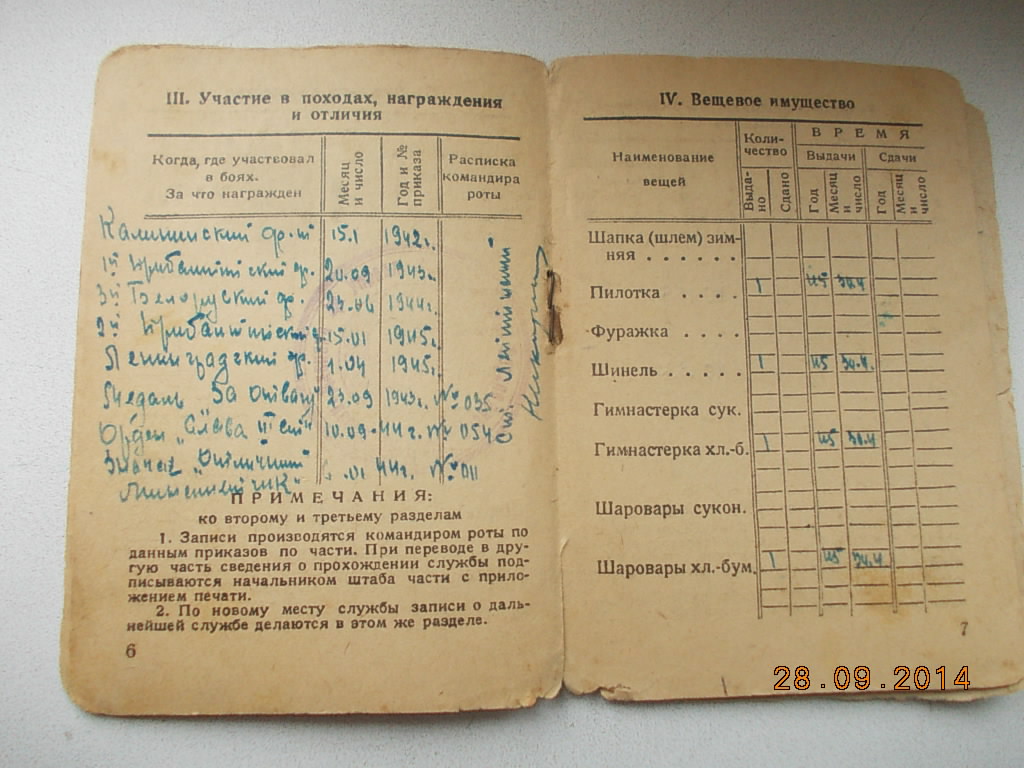 III. Участие в походах, награждения
и отличия
Когда, где участвовал
в боях.
За что награжден
Месяц
и число
Год и №
приказа
Расписка
командира
роты
Калининский фр-т 15.1 1942г.
1й Прибалтийский фр. 20.09 1943г.
3й Белоруский фр. 23.06 1944г.
2й Прибалтийский 15.01 1945г.
Ленинградский фр. 1.04 1945г.
Медаль За отвагу 23.09 1943г. № 035
Орден „Слава 10.09 44г. № 054
Значек „Отличный 01 44г. № 011
ПРИМЕЧАНИЯ:
ко второму и третьему разделам
1. Записи производятся командиром роты по
данным приказов по части. При переводе в дру-
гую часть сведения о прохождении службы под-
писываются начальником штаба части с прило-
жением печати.
2. По новому месту службы записи о даль-
нейшей службе делаются в этом же разделе.
6
IV. Вещевое имущество
Наименование
вещей
Коли-
чество
ВРЕМЯ
Выдачи
Сдачи
Выда-
но
Сдано
Год
Месяц
и
число
Год
Месяц
и
число
Шапка (шлем) зим-
няя . . . . . .
Пилотка . . . . 1 45 30.4
Фуражка . . . .
Шинель . . . . . 1 45 30.4.
Гимнастерка сук.
Гимнастерка хл.-б. 1 45 30.4
Шаровары сукон.
Шаровары хл.-бум. 1 45 30.4
7
28.09.2014